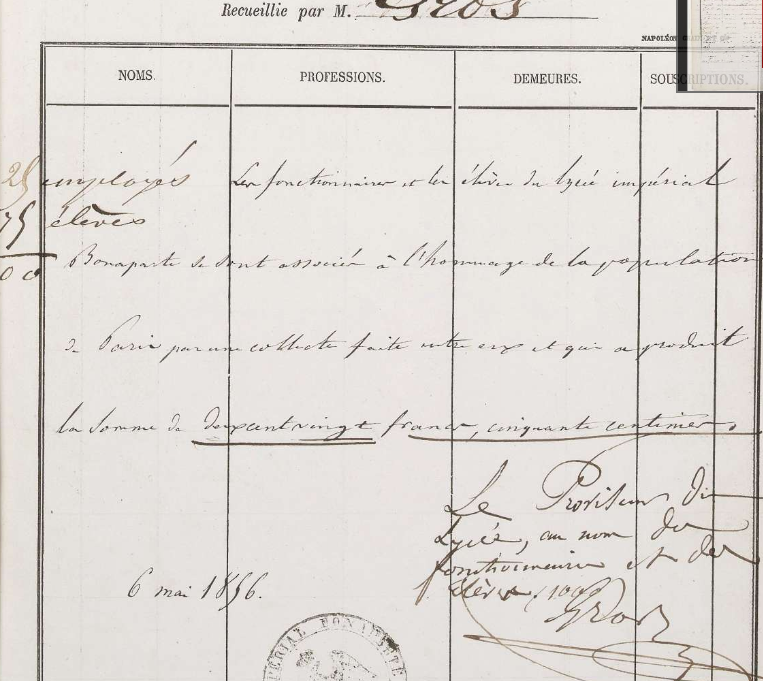 Recueillie par M. Gros
NAPOLÉON
NOMS. PROFESSIONS. DEMEURES. SOUSCRIPTIONS.
25 employés Les fonctionnaires et les élèves du lycée impérial
75 élèves
Bonaparte se sont associés à l'hommage de la population
de Paris par une collecte faite entre eux et qui a produit
la somme de deux cent vingt francs, cinquante centimes.
Le Proviseur du
Lycée, au nom des
fonctionnaires et des
élèves (100)
Gros
6 mai 1856.
BONAPARTE